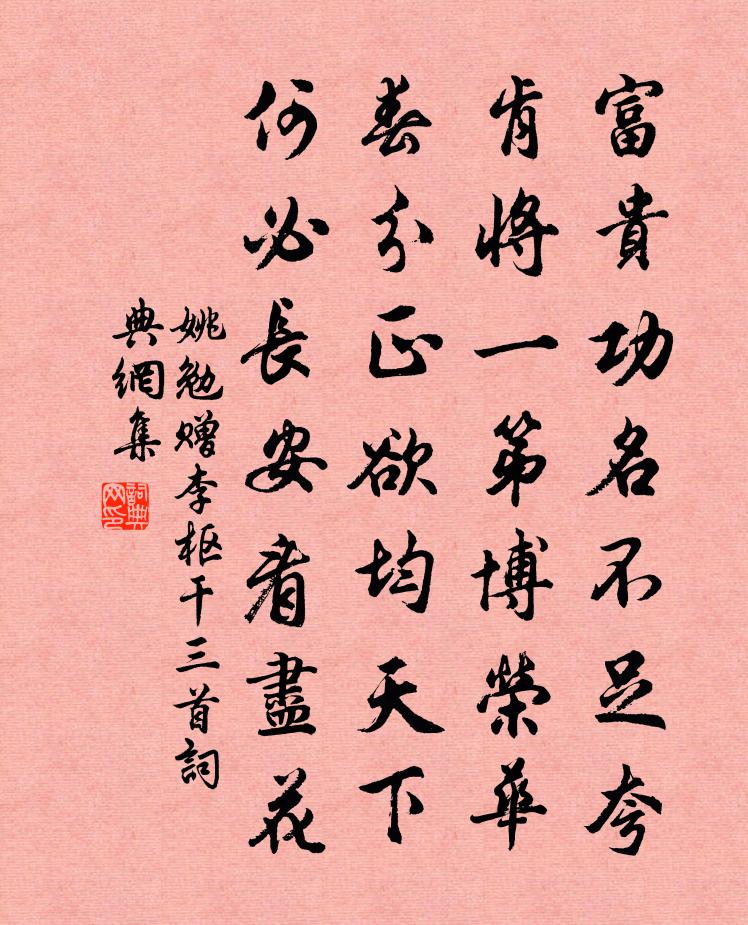 富貴功名不足夸
肯將一第博榮華
春分正欲均天下
何必長安看盡花
姚勉贈李枢干三首詞
典網集
詞典网印